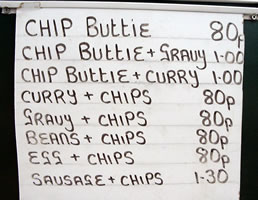 CHIP Buttie 80p
CHIP Buttie + Gravy 1-00
CHIP Buttie + CURRY 1-00
CURRY + CHIPS 80p
Gravy + CHIPS 80p
BEANS + CHIPS 80p
EGG + CHIPS 80p
SAUSAGE + CHIPS 1-30